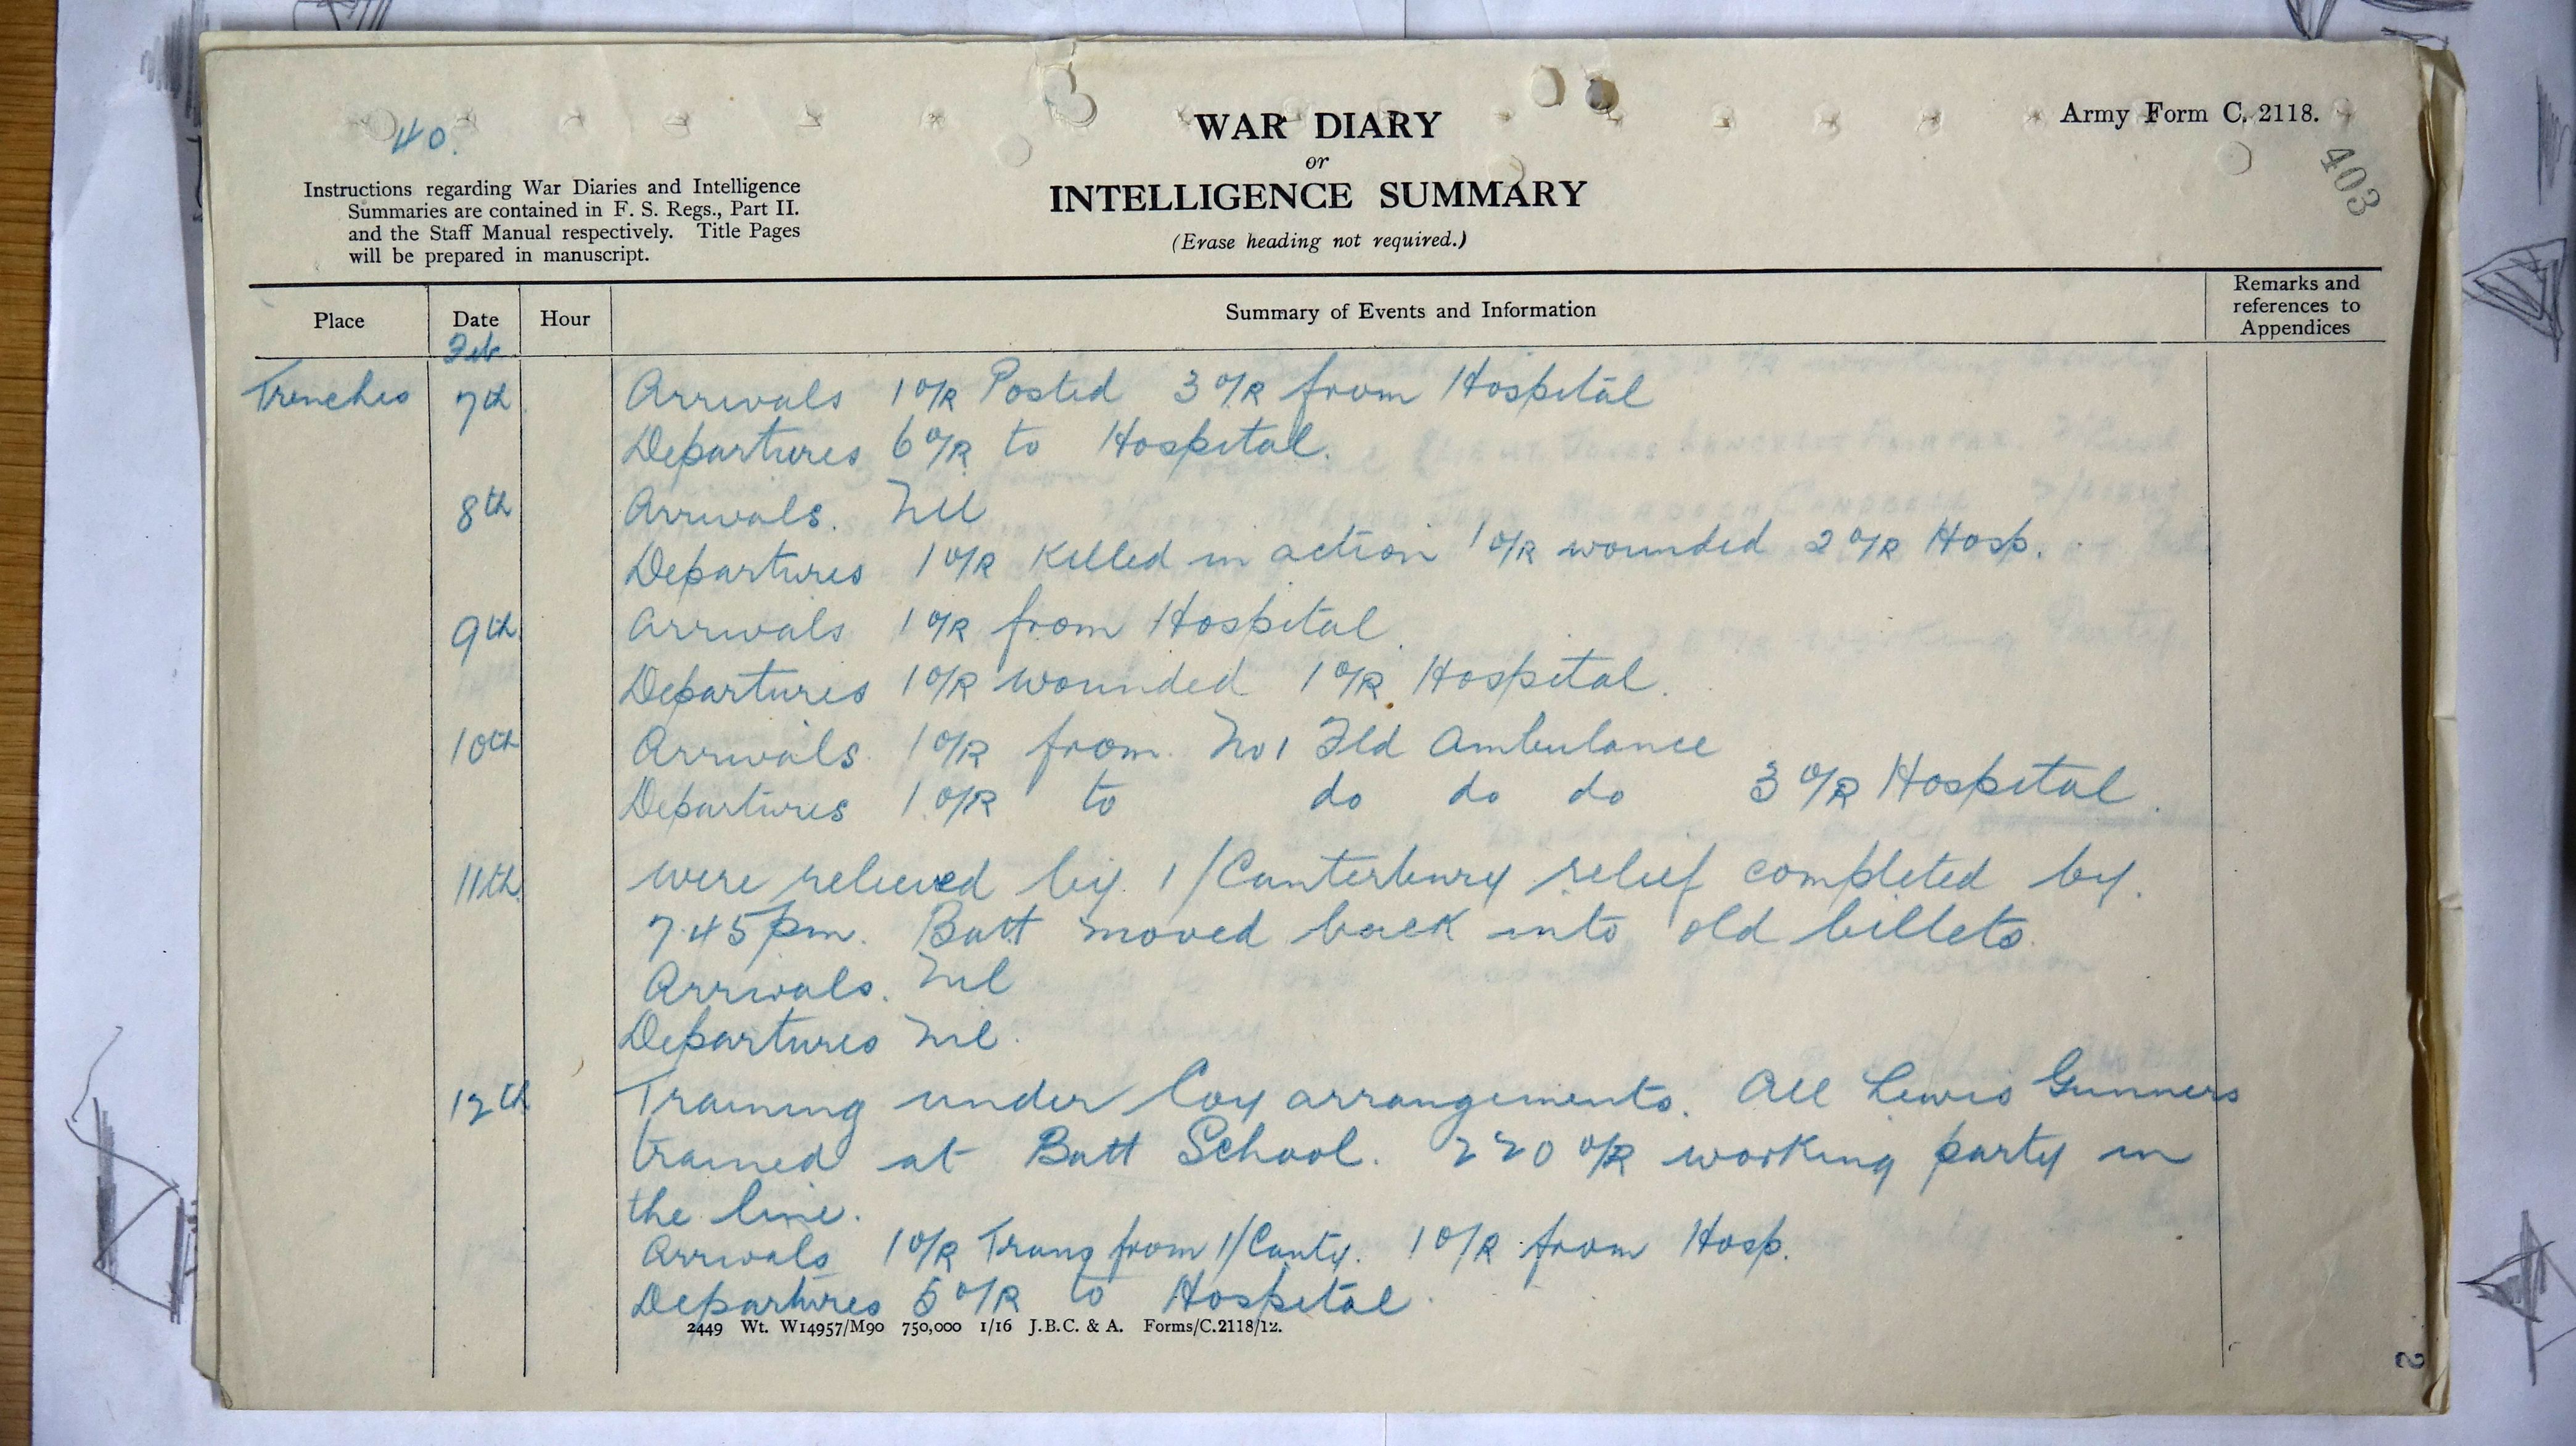 40.
WAR DIARY
or
INTELLIGENCE SUMMARY
(Erase heading not required.)
Army Form C. 2118.
403
Instructions regarding War Diaries and Intelligence
Summaries are contained in F. S. Regs., Part II.
and the Staff Manual respectively. Title Pages
will be prepared in manuscript.
Place Date Hour Summary of Events and Information Remarks and references to Appendices
Feb
Trenches 7th Arrivals 1 O/R Posted 3 O/R from Hospital
Departures 6 O/R to Hospital.
8th Arrivals. Nil
Departures 1 O/R Killed in action 1 O/R wounded 2 O/R Hosp.
9th Arrivals 1 O/R from Hospital.
Departures 1 O/R wounded 1 O/R Hospital.
10th Arrivals. 1 O/R from No 1 Fld Ambulance
Departures 1 O/R to do do do 3 O/R Hospital.
11th were relieved by 1/Canterbury relief completed by.
7.45 pm. Batt moved back into old billets.
Arrivals. Nil
Departures Nil.
12th Training under Coy arrangements. All Lewis Gunners
trained at Batt School. 220 O/R working party in
the line.
Arrivals 1 O/R Trans from 1/Canty. 1 O/R from Hosp.
Departures 5 O/R to Hospital.
2449 Wt. W14957/M90 750,000 1/16 J.B.C. & A. Forms/C.2118/12.
2